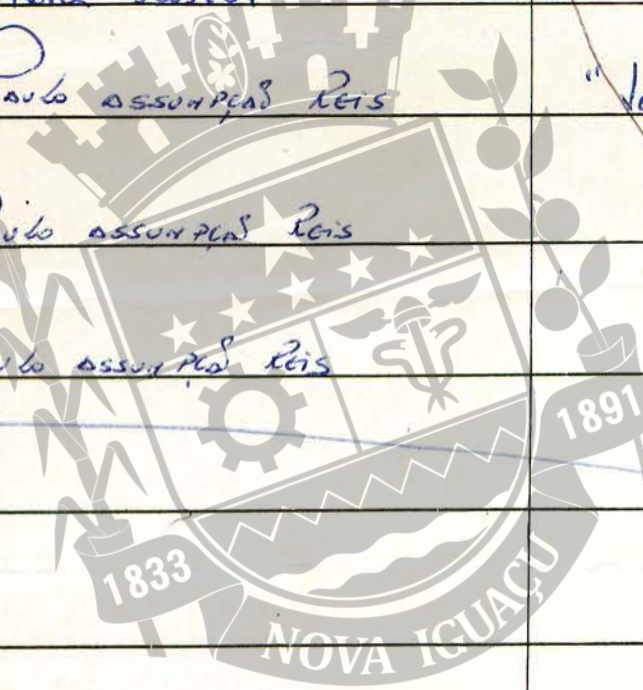 Paulo Assumpção Reis
Paulo Assumpção Reis
Paulo Assumpção Reis
1891
1833
NOVA IGUAÇU